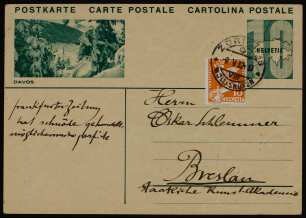 POSTKARTE CARTE POSTALE CARTOLINA POSTALE
DAVOS
HELVETIA
frankfurter Zeitung
hat schnöde gehandelt
Herrn
Oskar Schlemmer
Breslau
Staatliche Kunstakademie